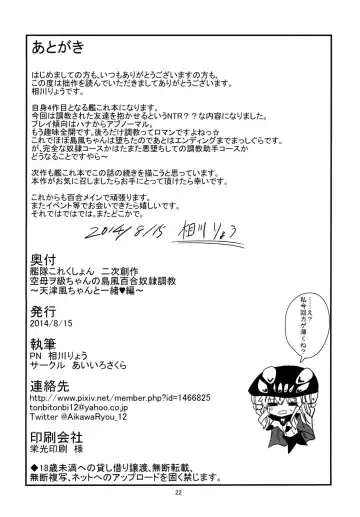 あとがき
はじめましての方も、いつもありがとうございますの方も、
この度は拙作を読んでいただきましてありがとうございます。
相川りょうです。
自身4作目となる艦これ本になります。
今回は調教された友達を抱かせるというNTR？？な内容になりました。
プレイ傾向はハナからアブノーマル。
もう趣味全開です。後ろだけ調教ってロマンですよねっ☆
これでほぼ島風ちゃんは堕ちたのであとはエンディングまでまっしぐらです
が、完全な奴隷コースかはたまた悪堕ちしての調教助手コースか
どうなることですやら～
次作も艦これ本でこの話の続きを描こうと思っています。
本作がお気に召しましたらお手にとって頂けたら幸いです。
これからも百合メインで頑張ります。
またイベント等でお会いできたら嬉しいです。
それではではでは、またどこかで。
2014/8/15 相川りょう
奥付
艦隊これくしょん 二次創作
空母ヲ級ちゃんの島風百合奴隷調教
～天津風ちゃんと一緒♥編～
発行
2014/8/15
執筆
PN 相川りょう
サークル あいいろさくら
連絡先
http://www.pixiv.net/member.php?id=1466825
tonbitonbi12@yahoo.co.jp
Twitter @AikawaRyou_12
印刷会社
栄光印刷 様
◆18歳未満への貸し借り譲渡、無断転載、
無断複写、ネットへのアップロードを固く禁じます。
……え？
私今回カゲ
薄くね？
22